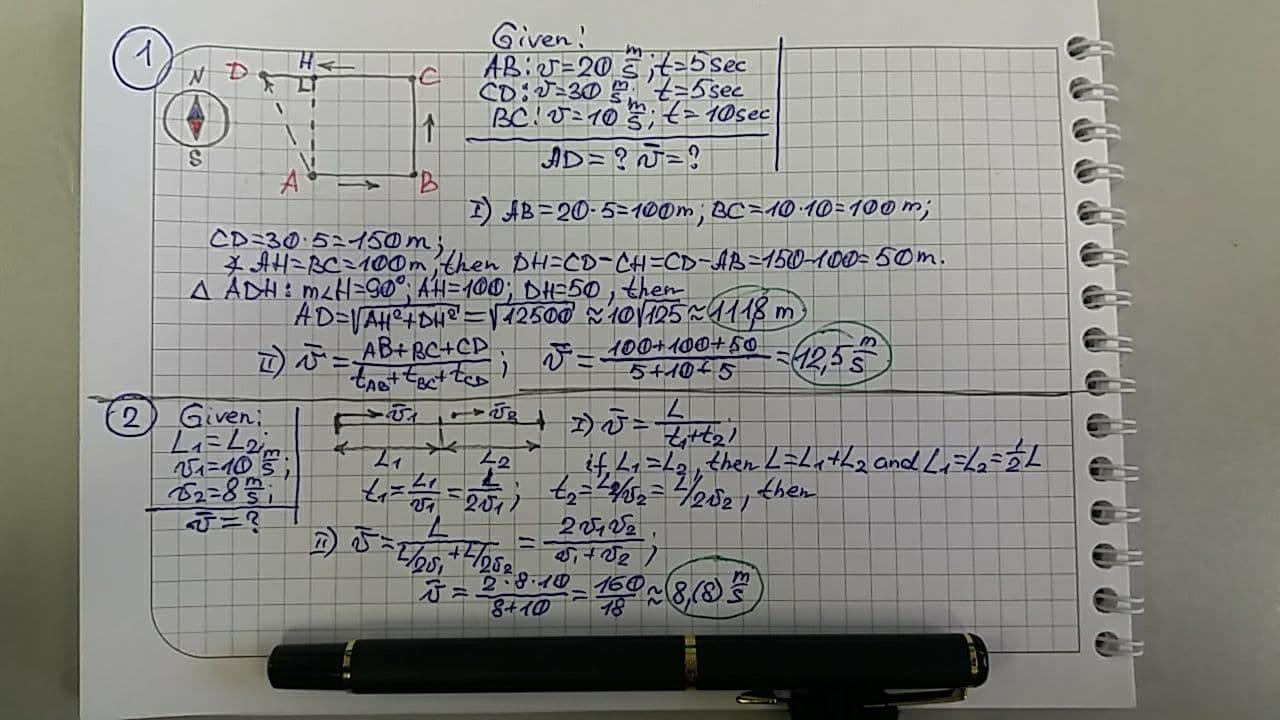 1
Given:
AB: v=20 m/s; t=5sec
CD: v=30 m/s; t=5sec
BC: v=10 m/s; t=10sec
AD=? v̅=?
N
S
D H C
A B
I) AB=20·5=100m; BC=10·10=100m;
CD=30·5=150m;
* AH=BC=100m, then DH=CD-CH=CD-AB=150-100=50m.
△ ADH: m∠H=90°; AH=100; DH=50, then
AD=√AH²+DH²=√12500 ≈10√125≈1118 m
II) v̅=AB+BC+CD/tAB+tBC+tCD; v̅=100+100+50/5+10+5=12,5 m/s
2
Given:
L1=L2;
v1=10 m/s;
v2=8 m/s;
v̅=?
v̅1 v̅2
L1 L2
I) v̅=L/t1+t2;
if, L1=L2, then L=L1+L2 and L1=L2=1/2L
t1=L1/v1=L/2v1; t2=L2/v2=L/2v2, then
II) v̅=L/L/2v1+L/2v2=2v1v2/v1+v2;
v̅=2·8·10/8+10=160/18≈8,(8) m/s